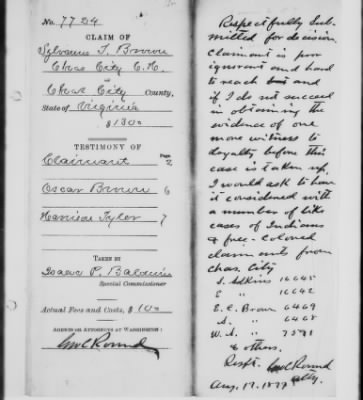 No. 7724
CLAIM OF
Sylvanus T. Brown
Chas City C.H.
Chas City County,
State of Virginia
$130.0
TESTIMONY OF
Page
Claimant 2
Oscar Brown 6
Harrison Tyler 7
TAKEN BY
Isaac P. Baldwin
Special Commissioner
Actual Fees and Costs, $
AGENTS OR ATTORNEYS AT WASHINGTON:
Geo C Round
Respectfully Sub-
mitted for decision
Claimant is poor
ignorant and hard
to reach and
if I do not succeed
in obtaining the
evidence of one
more witness to
loyalty before this
case is taken up,
I would ask to have
it considered with
a number of like
cases of Indians
& free-colored
claimants from
Chas. City
S. Adkins 16645
E " 16642
E. C. Brown 6469
A. " 6468
W. A. " 7591
& others.
Respt. Geo C Round
Atty.
Aug. 17. 1877